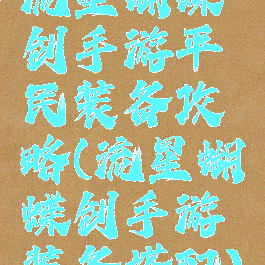 流星蝴蝶
剑手游平
民装备攻
略(流星蝴
蝶剑手游
装备搭配)